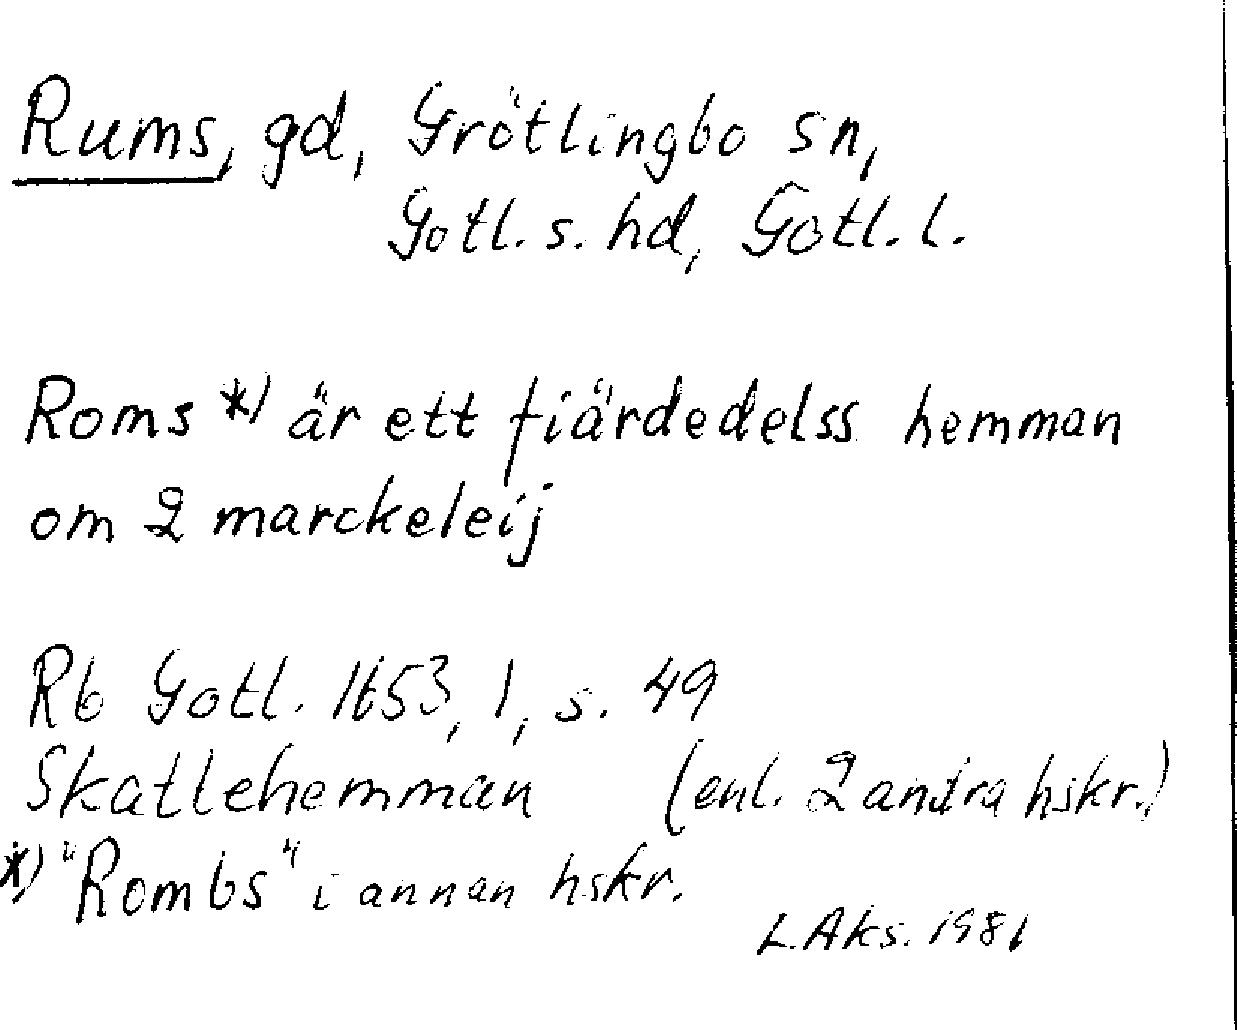 Rums, gd, Grötlingbo sn,
Gotl. s. hd, Gotl. l.
Roms *) är ett fiärdedelss hemman
om 2 marckeleij
Rb Gotl. 1653, 1, s. 49
Skattehemman (enl. 2 andra hskr.)
*) "Rombs" i annan hskr.
L. Aks. 1981